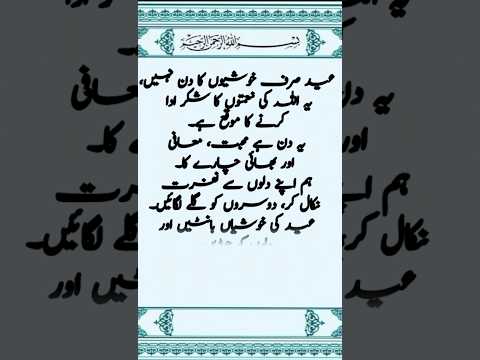 بسم الله الرحمن الرحيم
عید صرف خوشیوں کا دن نہیں،
یہ اللہ کی نعمتوں کا شکر ادا
کرنے کا موقع ہے۔
یہ دن ہے محبت، معافی
اور بھائی چارے کا۔
ہم اپنے دلوں سے نفرت
نکال کر، دوسروں کو گلے لگائیں۔
عید کی خوشیاں بانٹیں اور